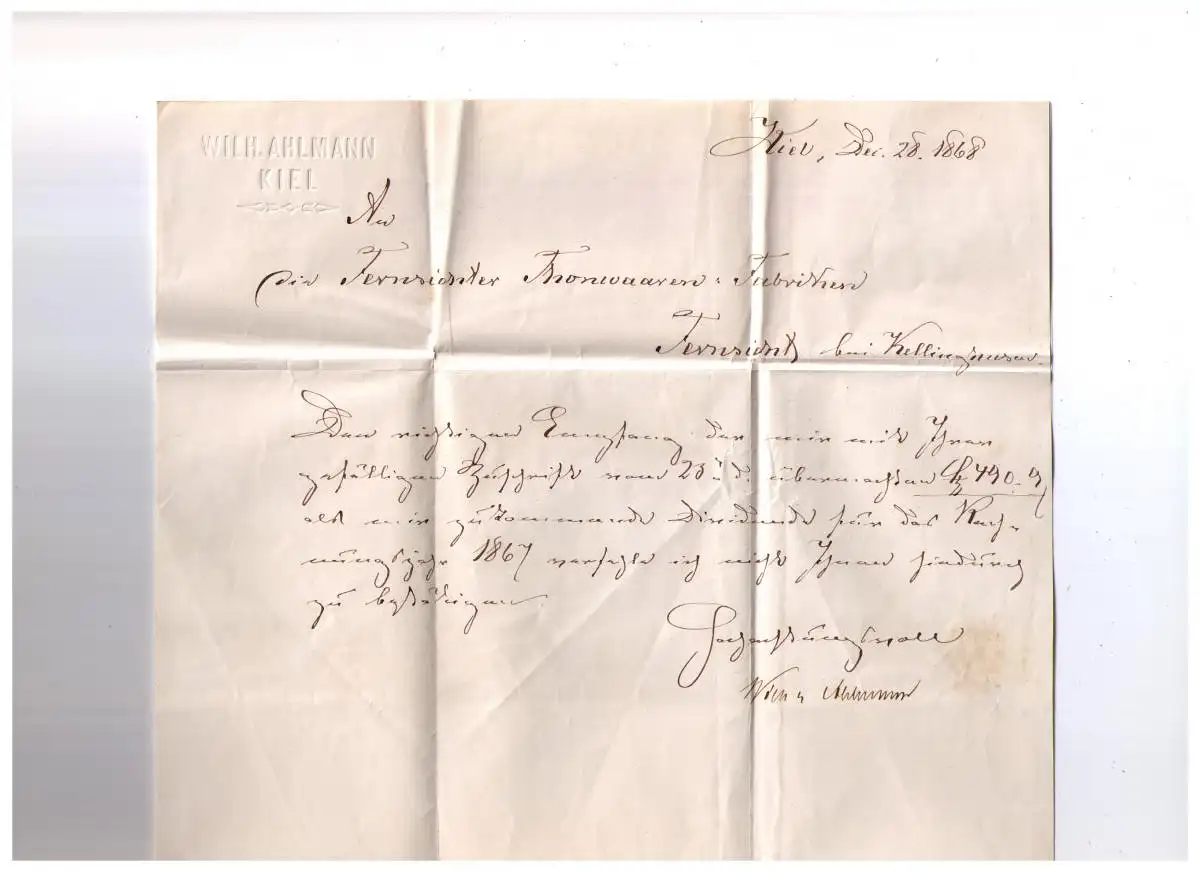 WILH. AHLMANN
KIEL
Kiel, Dec. 28. 1868
An
die Fernsichter Thonwaaren-Fabriken
Fernsicht bei Kellinghusen.
Den richtigen Empfang der mir mit Ihrer
gefälligen Zuschrift vom 23 d. übermachten
als mir zukommende Dividende für das Rech-
nungsjahr 1867 verfehle ich nicht Ihnen hiedurch
zu bestätigen.
Hochachtungsvoll
Wilh. Ahlmann